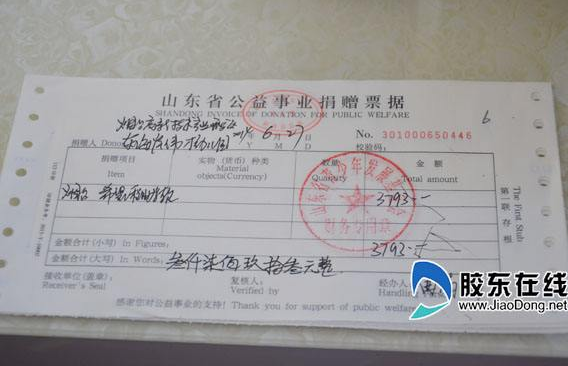 山东省公益事业捐赠票据
SHANDONG INVOICE OF DONATION FOR PUBLIC WELFARE
6
6 27
捐赠人 Donor
Y M D
No. 301000650446
校验码:
捐赠项目
Item
实物（货币）种类
Material objects(Currency)
数量
Quantity
金额
Total amount
3793
金额合计(小写) In Figures:
3793
金额合计(大写) In Words: 叁仟柒佰玖拾叁元整
接收单位(盖章)
Receiver's Seal
复核人:
Verified by
经办人
Handling
感谢您对公益事业的支持! Thank you for support of public welfare
第一联 存根
The First Stub
山东省青少年发展基金会
财务专用章
胶东在线
www.JiaoDong.net